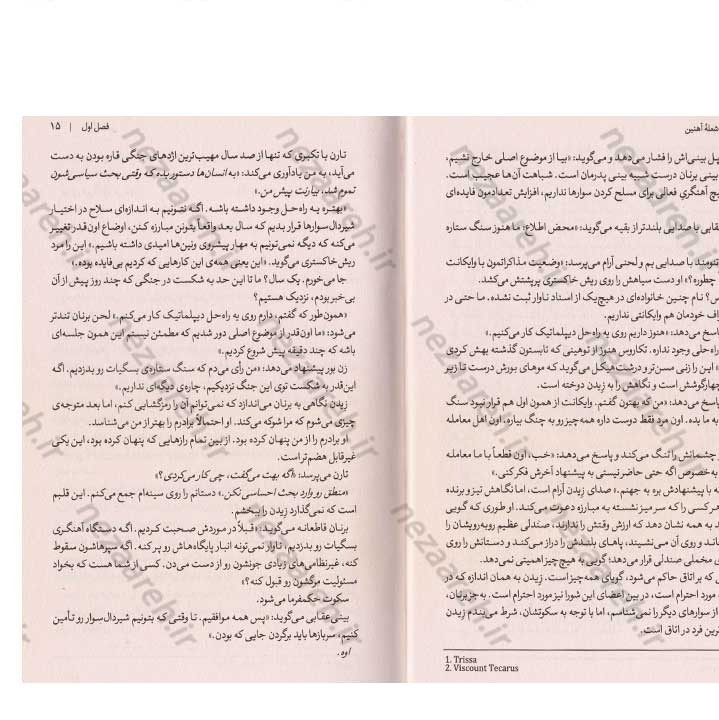 شعلهٔ آهنین
پل بینی‌اش را فشار می‌دهد و می‌گوید: «بیا از موضوع اصلی خارج نشیم،
بینی برنان درست شبیه بینی پدرمان است. شباهت آن‌ها عجیب است.
یچ آهنگریِ فعالی برای مسلح کردن سوارها نداریم، افزایش تعداد‌مون فایده‌ای
قابی با صدایی بلندتر از بقیه می‌گوید: «محض اطلاع: ما هنوز سنگ ستاره
تنومند با صدایی بم و لحنی آرام می‌پرسد: «وضعیت مذاکراتمون با وایکانت
چطوره؟» او دست سیاهش را روی ریش خاکستری پرپشتش می‌کشد.
س؟ نام چنین خانواده‌ای در هیچ‌یک از اسناد ناوار ثبت نشده. ما حتی در
راف خودمان هم وایکانتی نداریم.
پاسخ می‌دهد: «هنوز داریم روی یه راه‌حل دیپلماتیک کار می‌کنیم.»
راه‌حلی وجود نداره. تکاروس هنوز از توهینی که تابستون گذشته بهش کردی
» این را زنی مسن‌تر و درشت‌هیکل می‌گوید که موهای بورش درست تا زیر
چهارگوشش است و نگاهش را به زیدن دوخته است.
پاسخ می‌دهد: «من که بهتون گفتم. وایکانت از همون اول هم قرار نبود سنگ
به ما بده. اون مرد فقط دوست داره همه‌چیز رو به چنگ بیاره. اون اهل معامله
چشمانش را تنگ می‌کند و پاسخ می‌دهد: «خب، اون قطعاً با ما معامله
به‌خصوص اگه حتی حاضر نیستی به پیشنهاد آخرش فکر کنی.»
ه با پیشنهادش بره به جهنم.» صدای زیدن آرام است، اما نگاهش تیز و برنده
هر کسی را که سر میز نشسته به مبارزه دعوت می‌کند. او طوری که گویی
د به همه نشان دهد که ارزش وقتش را ندارند، صندلی عظیم روبه‌رویشان را
اند و روی آن می‌نشیند، پاهای بلندش را دراز می‌کند و دستانش را روی
ی مخملی صندلی قرار می‌دهد؛ گویی به هیچ‌چیز اهمیتی نمی‌دهد.
ی که بر اتاق حاکم می‌شود، گویای همه‌چیز است. زیدن به همان اندازه که در
مورد احترام است، در بین اعضای این شورا نیز مورد احترام است. به‌جز برنان،
از سوارهای دیگر را نمی‌شناسم، اما با توجه به سکوتشان، شرط می‌بندم زیدن
ترین فرد در اتاق است.
1. Trissa
2. Viscount Tecarus
فصل اول | ۱۵
تارن با تکبری که تنها از صد سال مهیب‌ترین اژدهای جنگی قاره بودن به دست
می‌آید، به من یادآوری می‌کند: «به انسان‌ها دستور بده که وقتی بحث سیاسی‌شون
تموم شد، بیارنت پیش من.»
«بهتره یه راه‌حل وجود داشته باشه. اگه نتونیم به اندازه‌ای سلاح در اختیار
شیردال‌سوارها قرار بدیم که سال بعد واقعاً بتونن مبارزه کنن، اوضاع اون‌قدر تغییر
می‌کنه که دیگه نمی‌تونیم به مهار پیشروی ونین‌ها امیدی داشته باشیم.» این را مرد
ریش‌خاکستری می‌گوید. «این یعنی همه‌ی این کارهایی که کردیم بی‌فایده بوده.»
جا می‌خورم. یک سال؟ ما تا این حد به شکست در جنگی که چند روز پیش از آن
بی‌خبر بودم، نزدیک هستیم؟
«همون‌طور که گفتم، دارم روی یه راه‌حل دیپلماتیک کار می‌کنم.» لحن برنان تندتر
می‌شود: «ما اون‌قدر از موضوع اصلی دور شدیم که مطمئن نیستم این همون جلسه‌ای
باشه که چند دقیقه پیش شروع کردیم.»
زن بور پیشنهاد می‌دهد: «من رأی می‌دم که سنگ ستاره‌ی بسگیات رو بدزدیم. اگه
این‌قدر به شکست توی این جنگ نزدیکیم، چاره‌ی دیگه‌ای نداریم.»
زیدن نگاهی به برنان می‌اندازد که نمی‌توانم آن را رمزگشایی کنم، اما بعد متوجه‌ی
چیزی می‌شوم که مرا شوکه می‌کند. او احتمالاً برادرم را بهتر از من می‌شناسد.
او برادرم را از من پنهان کرده بود. از بین تمام رازهایی که پنهان کرده بود، این یکی
غیرقابل هضم‌تر است.
تارن می‌پرسد: «اگه بهت می‌گفت، چی کار می‌کردی؟»
«منطق رو وارد بحث احساسی نکن.» دستانم را روی سینه‌ام جمع می‌کنم. این قلبم
است که نمی‌گذارد زیدن را ببخشم.
برنان قاطعانه می‌گوید: «قبلاً در موردش صحبت کردیم. اگه دستگاه آهنگری
بسگیات رو بدزدیم، ناوار نمی‌تونه انبار پایگاه‌هاش رو پر کنه. اگه سپرهاشون سقوط
کنه، غیرنظامی‌های زیادی جونشون رو از دست می‌دن. کسی از شما هست که بخواد
مسئولیت مرگشون رو قبول کنه؟»
سکوت حکمفرما می‌شود.
بینی‌عقابی می‌گوید: «پس همه موافقیم. تا وقتی که بتونیم شیردال‌سوار رو تأمین
کنیم، سربازها باید برگردن جایی که بودن.»
اوه.
nezaareh.ir